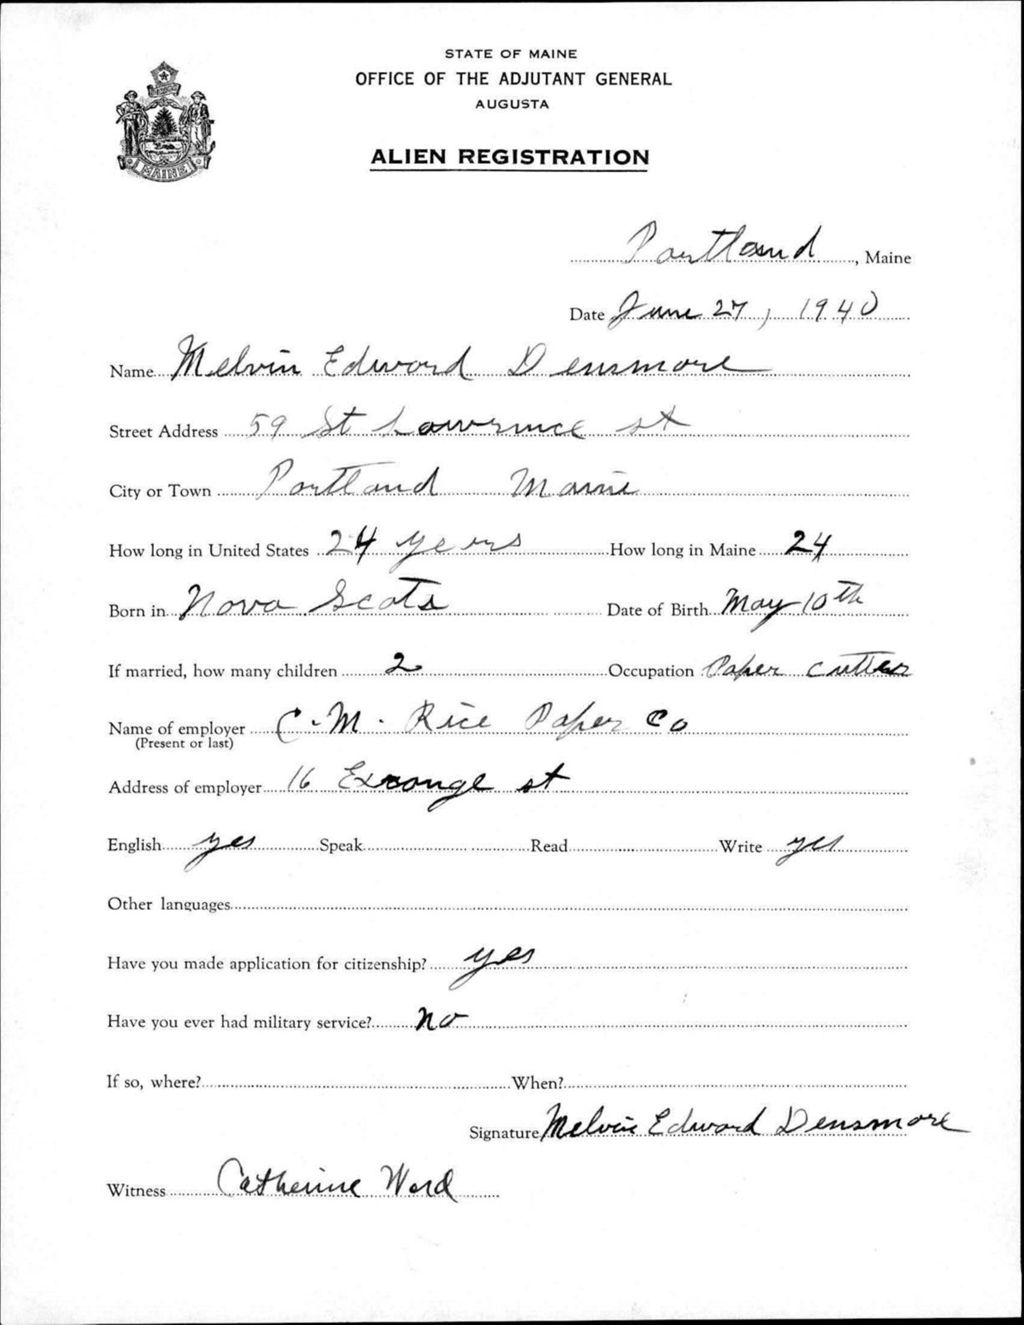 STATE OF MAINE
OFFICE OF THE ADJUTANT GENERAL
AUGUSTA
ALIEN REGISTRATION
MAINE
Portland, Maine
Date June 27, 1940
Name Melvin Edward Densmore
Street Address 59 St Lawrence st
City or Town Portland Maine
How long in United States 24 years How long in Maine 24
Born in Nova Scota Date of Birth May 10th
If married, how many children 2 Occupation Paper cutter
Name of employer C. M. Rice Paper Co
(Present or last)
Address of employer 16 Exconge st
English yes Speak Read Write yes
Other languages
Have you made application for citizenship? yes
Have you ever had military service? no
If so, where? When?
Signature Melvin Edward Densmore
Witness Catherine Ward